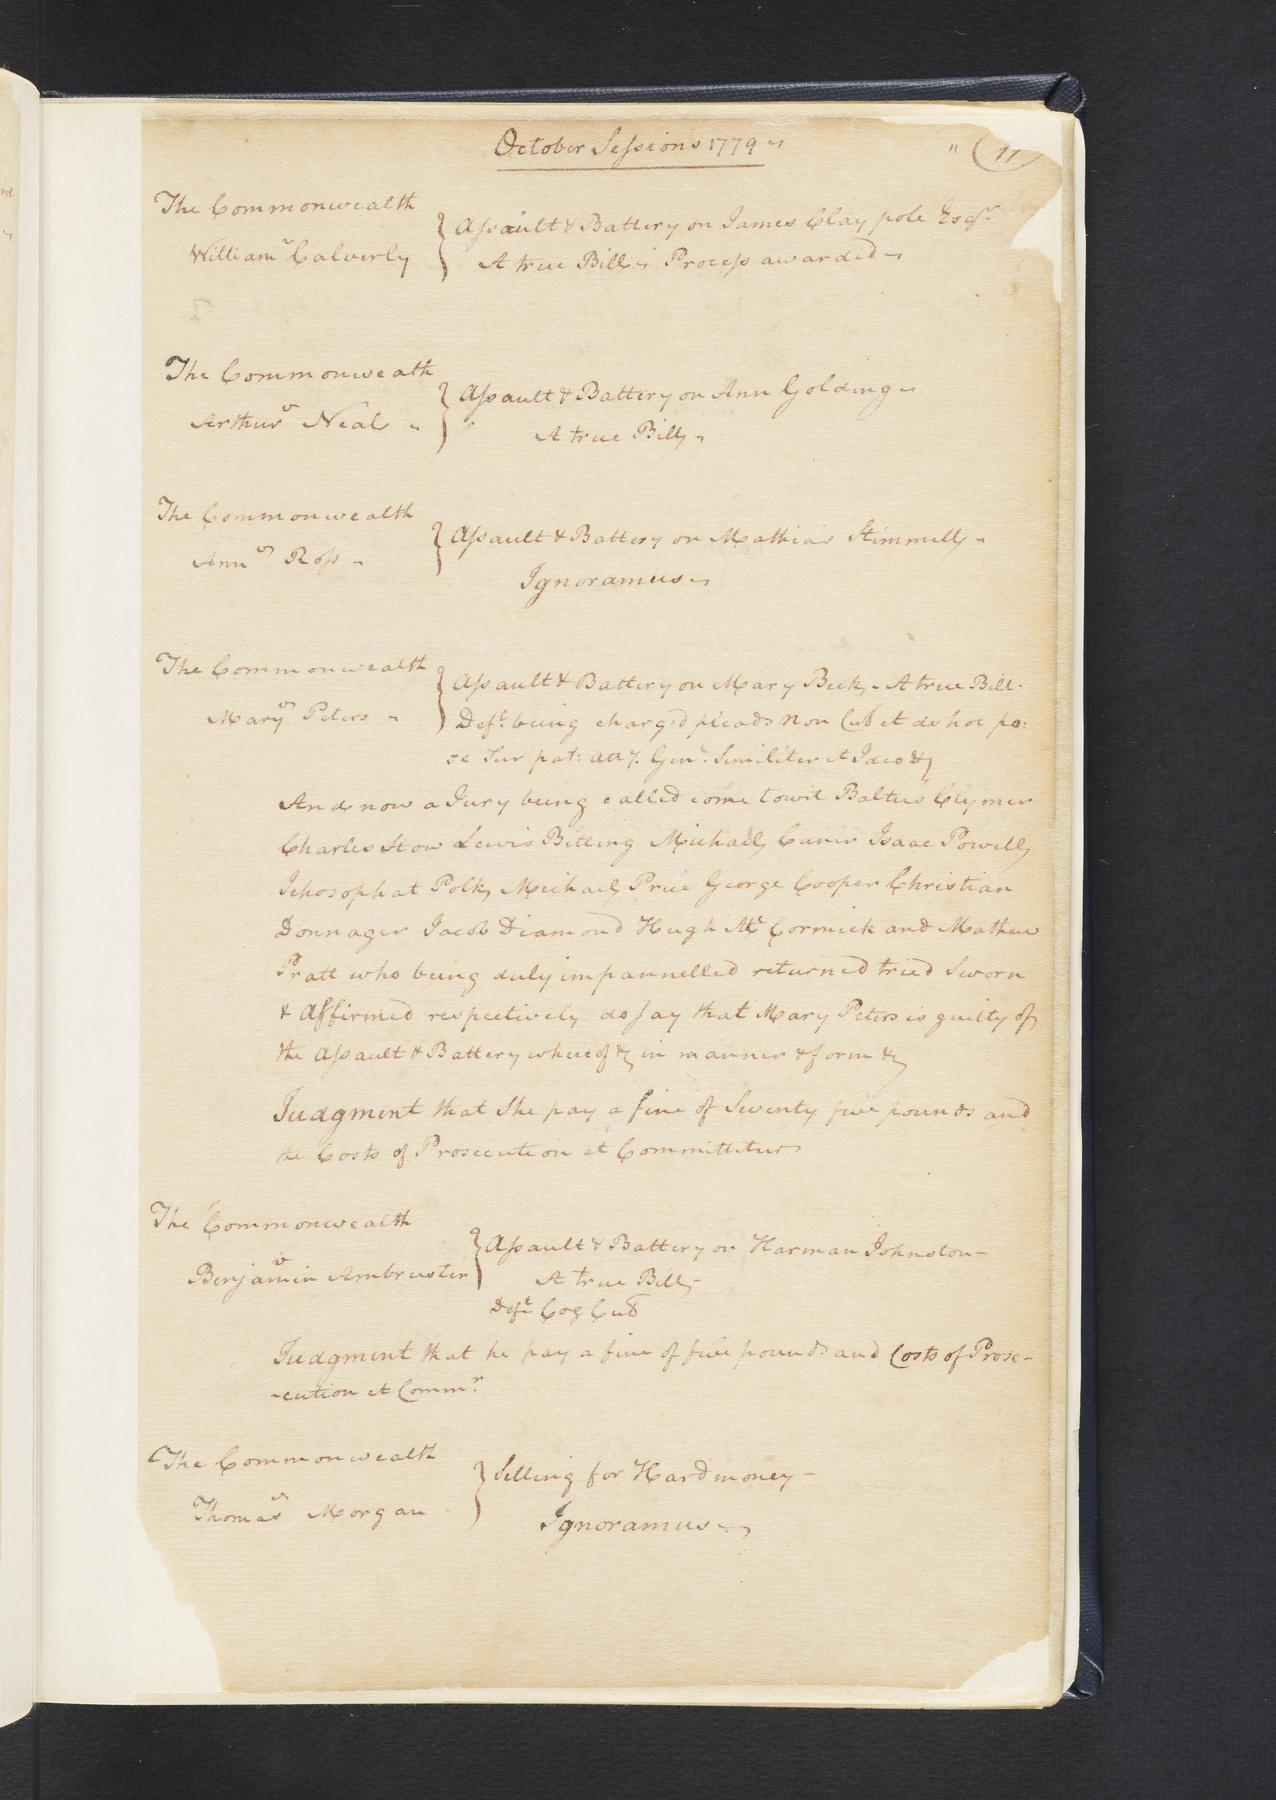 October Sessions 1779
" (11)
The Commonwealth
v
William Calverly
} Assault & Battery on James Claypole Esqr.
A true Bill Process awarded
The Commonweath
v
Arthur Neal
} Assault & Battery on Ann Golding
A true Bill
The Commonwealth
v
Ann Ross
} Assault & Battery on Mathias Stimmell
Ignoramus
The Commonwealth
v
Mary Peters
} Assault & Battery on Mary Beek - A true Bill.
Deft. being charg'd pleads Non Cul et de hoc po:
se Sur pat: atty. Genl. Similiter et Ideo &c
And now a Jury being called come towit Baltus Clymer
Charles Stow Lewis Bitting Michael Caner Isaac Powell
Jehosophat Polk, Michael Price George Cooper Christian
Donnager Jacob Diamond Hugh Mc Cormick and Mathew
Pratt who being duly impannelled returned tried Sworn
& Affirmed respectively do say that Mary Peters is guilty of
the Assault & Battery whereof &c in manner & form &c
Judgment that She pay a fine of Seventy five pounds and
the Costs of Prosecution et Committitur
The Commonwealth
v
Benjamin Ambruster
} Assault & Battery on Harman Johnston -
A true Bill -
Deft Cog Cul
Judgment that he pay a fine of five pounds and Costs of Prose-
-cution et Commr.
The Commonwealth
v
Thomas Morgan
} Selling for Hard money -
Ignoramus